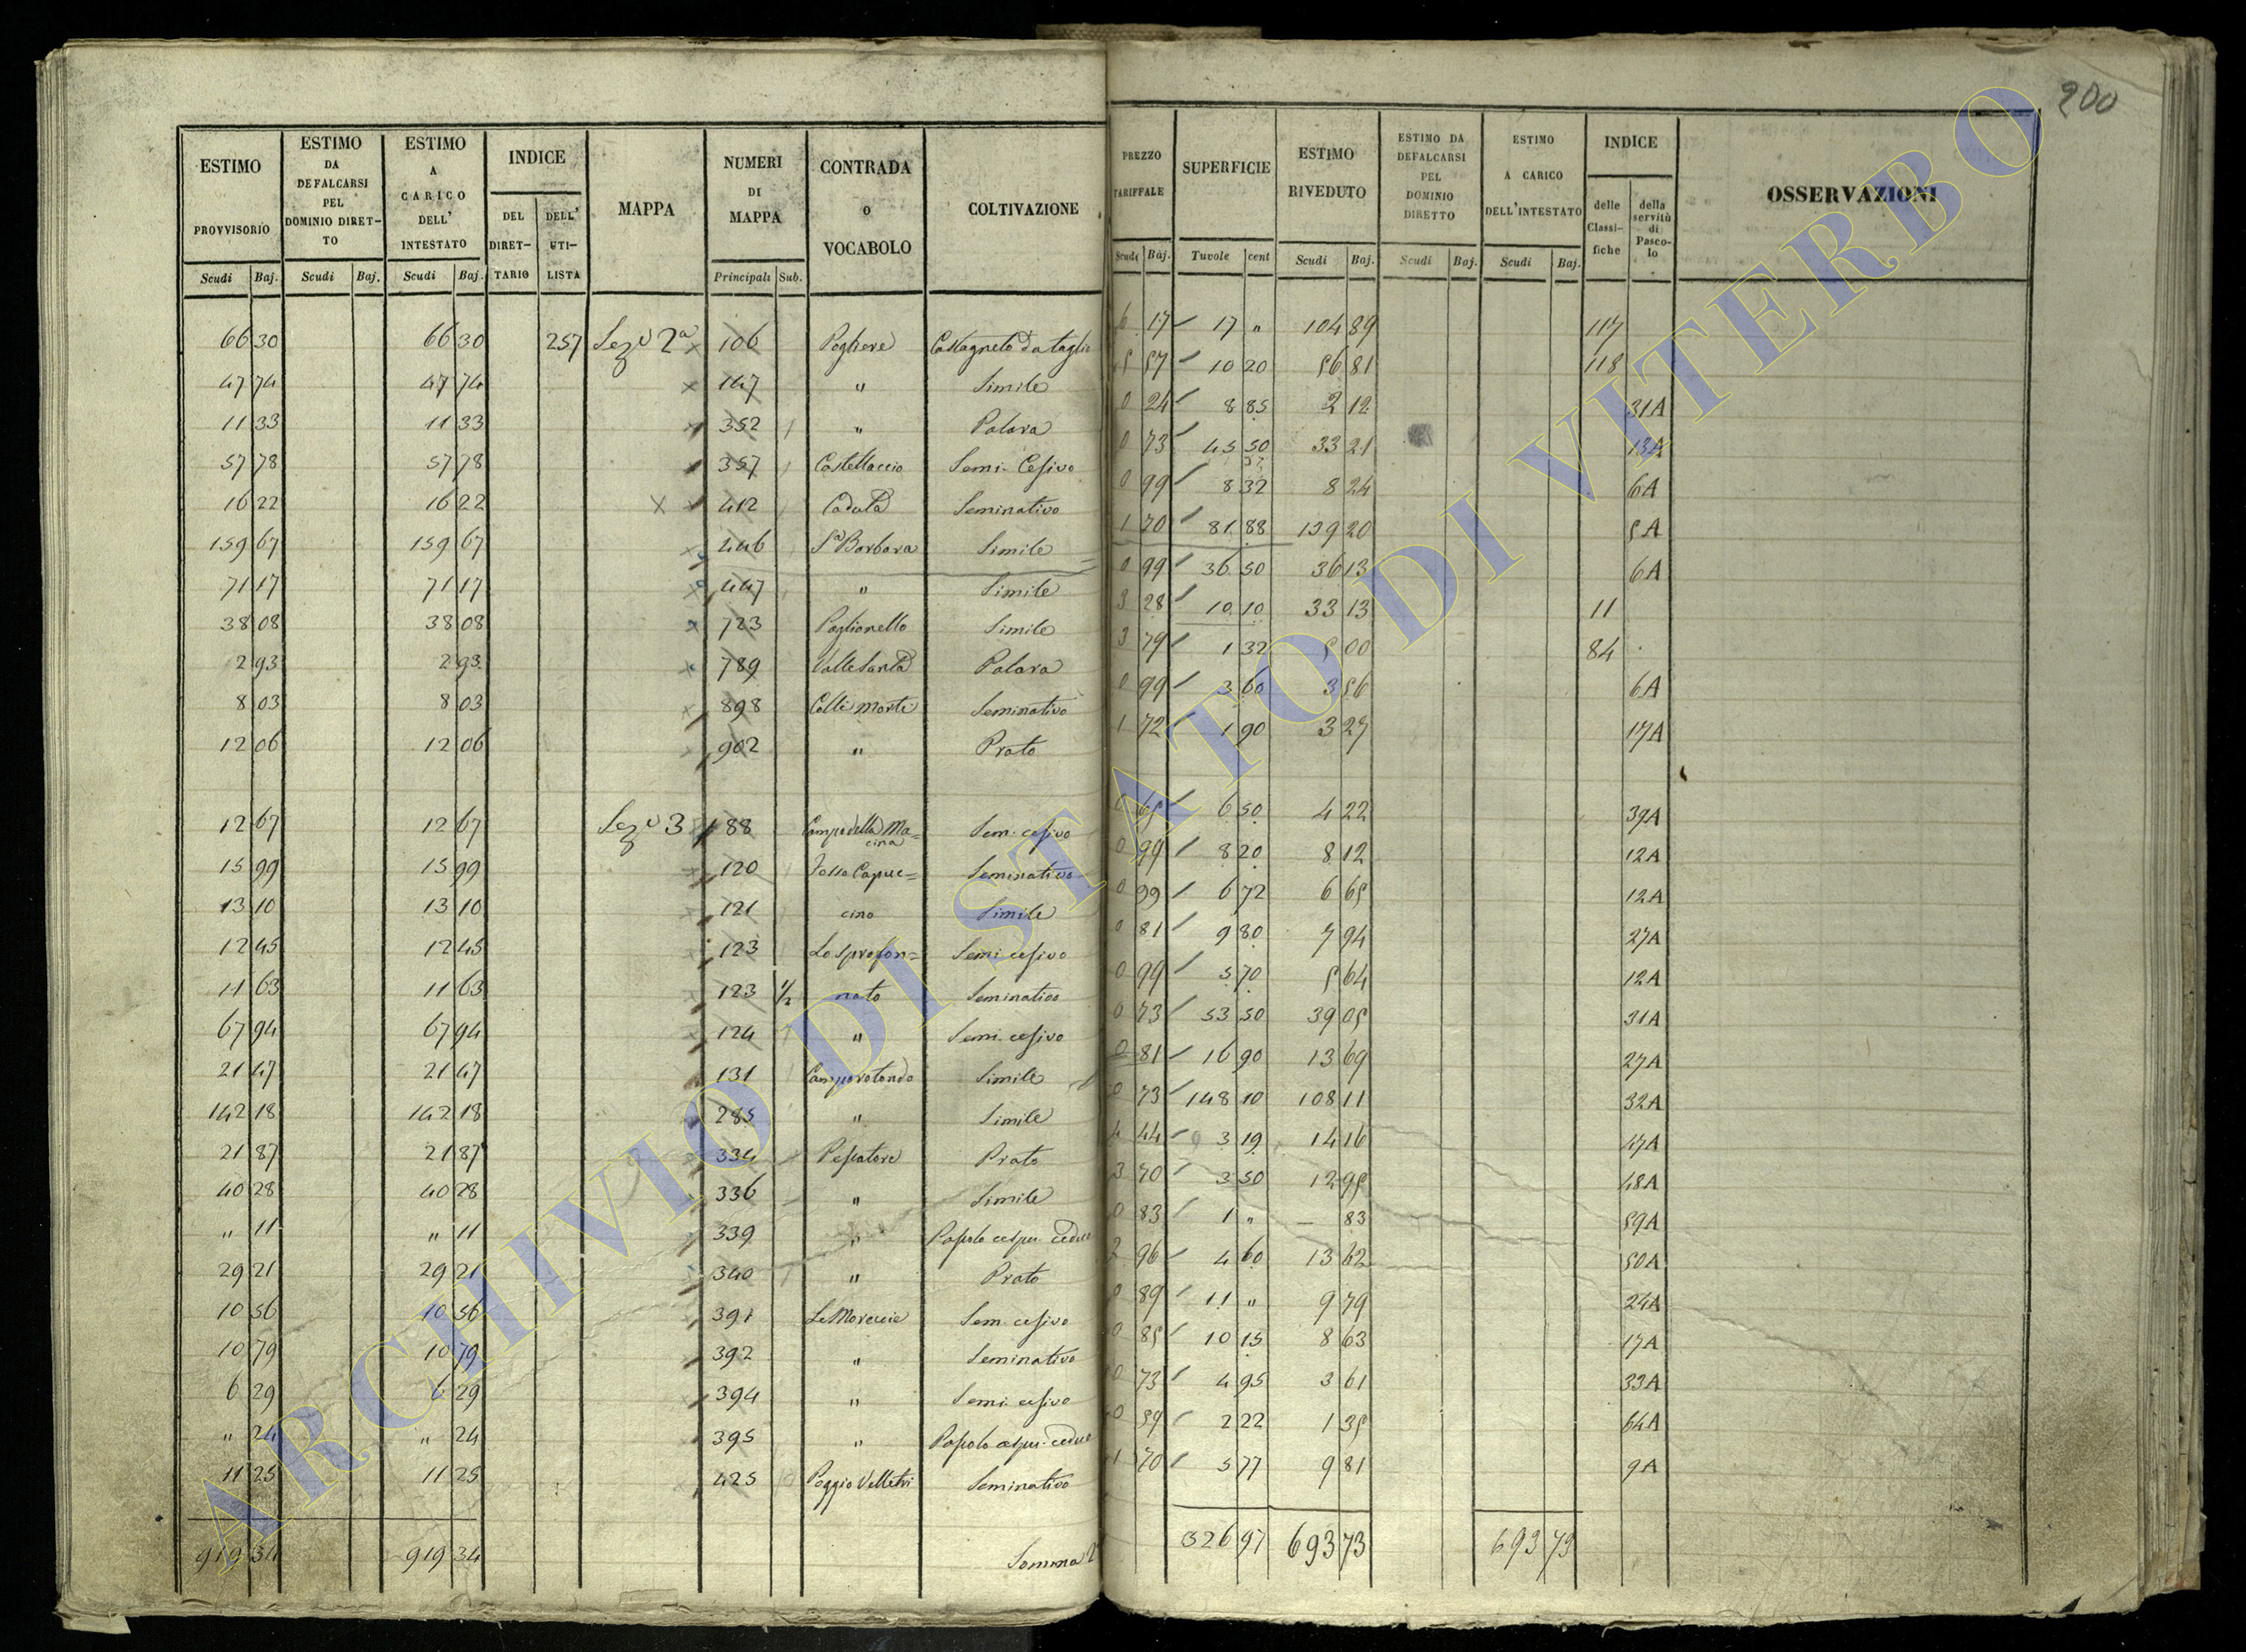 200
ESTIMO PROVVISORIO Scudi Baj.
ESTIMO DA DEFALCARSI PEL DOMINIO DIRETTO Scudi Baj.
ESTIMO A CARICO DELL' INTESTATO Scudi Baj.
INDICE DEL DIRETTARIO DELL' UTILISTA
MAPPA
NUMERI DI MAPPA Principali Sub.
CONTRADA O VOCABOLO
COLTIVAZIONE
PREZZO TARIFFALE Scudi Baj.
SUPERFICIE Tavole cent
ESTIMO RIVEDUTO Scudi Baj.
ESTIMO DA DEFALCARSI PEL DOMINIO DIRETTO Scudi Baj.
ESTIMO A CARICO DELL'INTESTATO Scudi Baj.
INDICE delle Classifiche della servitù di Pascolo
OSSERVAZIONI
66 30 66 30 257 Sez e 2a 106 Castagneto da taglio 6 17 17 " 104 89 117
47 74 47 74 147 " Simile 5 57 10 20 56 81 118
11 33 11 33 352 " Palara 0 24 8 85 2 12 31A
57 78 57 78 357 Castellaccio Semi-Cesivo 0 73 45 50 33 21 13A
16 22 16 22 412 Caduta Seminativo 0 99 8 32 8 24 6A
159 67 159 67 446 Sa Barbara Simile 1 70 81 88 139 20 5A
71 17 71 17 447 " Simile 0 99 36 50 36 13 6A
38 08 38 08 723 Poglionello Simile 3 28 10 10 33 13 11
2 93 2 93 789 Valle Santa Palara 3 79 1 32 5 00 84
8 03 8 03 898 Colle morte Seminativo 0 99 3 60 3 56 6A
12 06 12 06 902 " Prato 1 72 1 90 3 27 17A
12 67 12 67 Sez e 3 88 Campo della Macina Sem. cesivo 0 65 6 50 4 22 39A
15 99 15 99 120 Fosso Capuc= Seminativo 0 99 8 20 8 12 12A
13 10 13 10 121 cino Simile 0 99 6 72 6 65 12A
12 45 12 45 123 Lo sprofon= Semi cesivo 0 81 9 80 7 94 27A
11 63 11 63 123 1/2 nato Seminativo 0 99 5 70 5 64 12A
67 94 67 94 124 " Semi. cesivo 0 73 53 50 39 05 31A
21 47 21 47 131 Camporotondo Simile 0 81 16 90 13 69 27A
142 18 142 18 285 " Simile 0 73 148 10 108 11 32A
21 87 21 87 334 Pescatore Prato 4 44 3 19 14 16 47A
40 28 40 28 336 " Simile 3 70 3 50 12 95 48A
" 11 " 11 339 " cespu. ceduo 0 83 1 " — 83 59A
29 21 29 21 340 " Prato 2 96 4 60 13 62 50A
10 56 10 56 391 Sem. cesivo 0 89 11 " 9 79 24A
10 79 10 79 392 " Seminativo 0 85 10 15 8 63 17A
6 29 6 29 394 " Semi cesivo 0 73 4 95 3 61 33A
" 24 " 24 395 " cespu. ceduo 0 59 2 22 1 35 64A
11 25 11 25 425 Poggio Velletri Seminativo 1 70 5 77 9 81 9A
919 34 919 34 Somma 326 97 693 73 693 73
ARCHIVIO DI STATO DI VITERBO